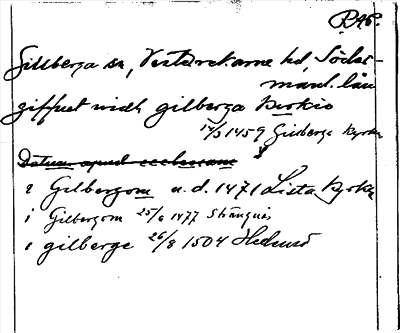 R 46.
Gillberga sn, Vesterrekarne hd, Söder-
manl. län
giffuet widh gilberga kirkio
14/3 1459 Gilberga kyrka
Datum apud ecclesiam
i Gilbergom u.d. 1471 Lista kyrka
i Gilbergom 25/6 1477 Strängnäs
i gilberge 26/8 1504